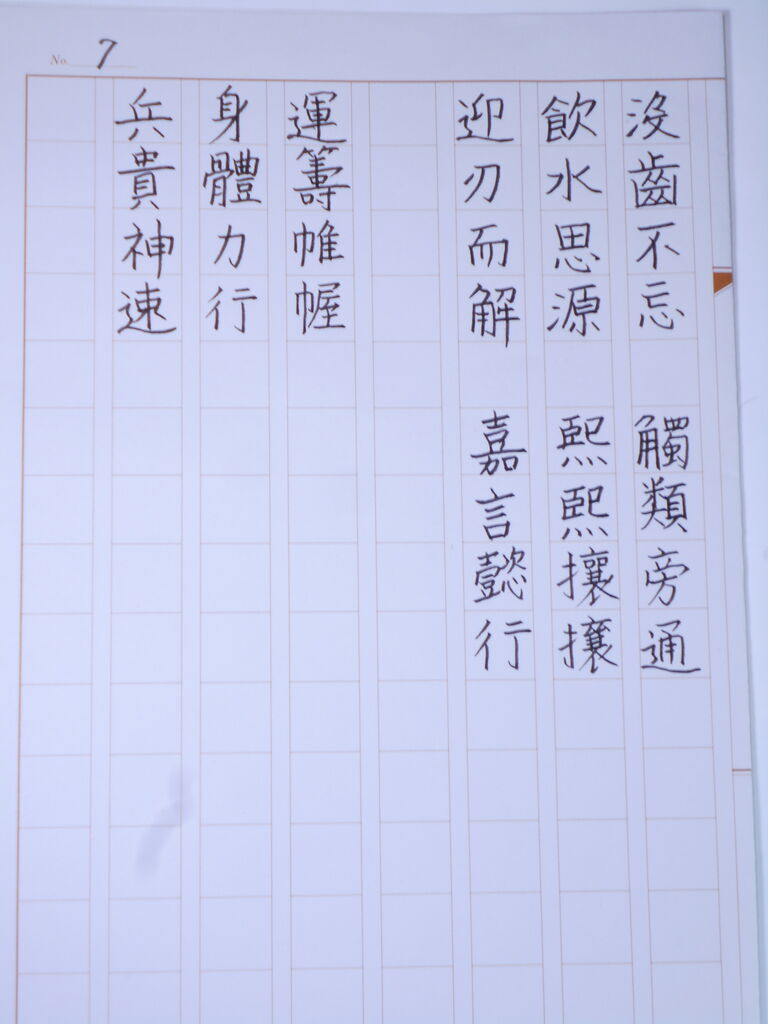 No. 7
沒齒不忘 觸類旁通
飲水思源 熙熙攘攘
迎刃而解 嘉言懿行
運籌帷幄
身體力行
兵貴神速